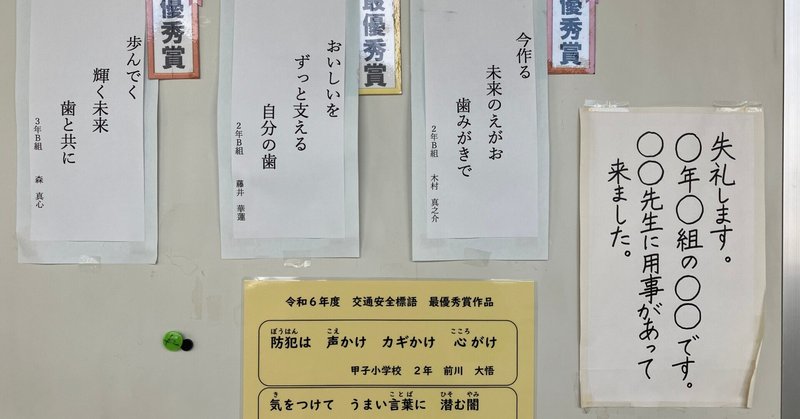 優秀賞
歩んでく
輝く未来
歯と共に
3年B組 森 真心
最優秀賞
おいしいを
ずっと支える
自分の歯
2年B組 藤井 華蓮
優秀賞
今作る
未来のえがお
歯みがきで
2年B組 木村 真之介
失礼します。
〇年〇組の〇〇です。
〇〇先生に用事があって
来ました。
令和6年度 交通安全標語 最優秀賞作品
防犯は 声かけ カギかけ 心がけ
甲子小学校 2年 前川 大悟
気をつけて うまい言葉に 潜む闇